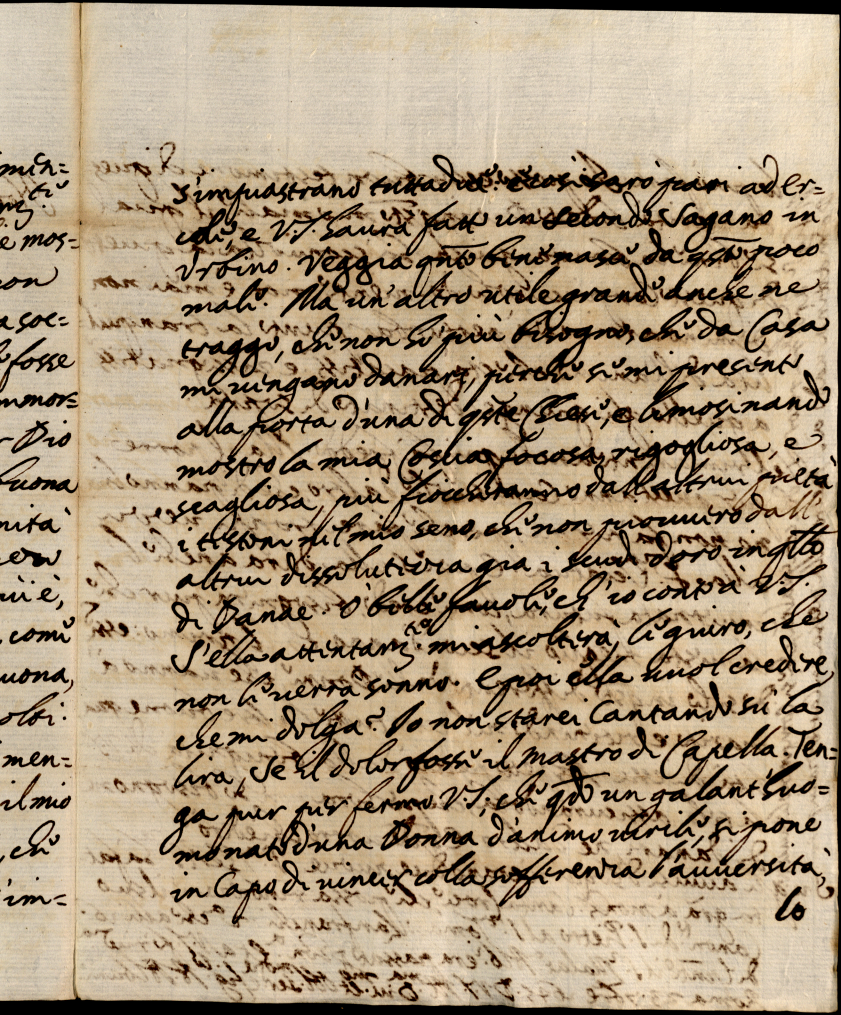 min=
ti
e mos=
non
a soc=
fosse
mmor=
Dio
buona
nità
ui è,
come
uona,
olti.
men=
il mio
, che
im=
s'impiastrano tuttadue: e cosi sarò pari ad Er=
cole, e V.S. haurà fatt un secondo Sagano in
Vrbino. Veggia qnto bene nasce da qsto poco
male. Ma un'altro utile grande anche ne
traggo, che non hò più bisogno, che da Casa
mi vengano danari, perche se mi presento
alla porta d'una di qste Chiese, e limosinando
mostro la mia Coscia focosa, rigogliosa, e
scagliosa, più fioccheranno dall'altrui pietà
i testoni nel mio seno, che non piouuero dall'
altrui dissolutezza gia i scudi d'oro in qllo
di Danae. O' belle fauole, ch'io conto à V.S.
S'ella attentamte mi ascolterà, le giuro, che
non le uerrà sonno. E poi ella uuol credere,
che mi dolga? Io non starei Cantando sù la
lira, se il dolor fosse il Mastro di Capella. Ten=
ga pur per fermo V.S., che qdo un galant'huo=
mo nato d'una Donna d'animo uirile, si pone
in Capo di uincer colla sofferenza l'auuersità,
lo